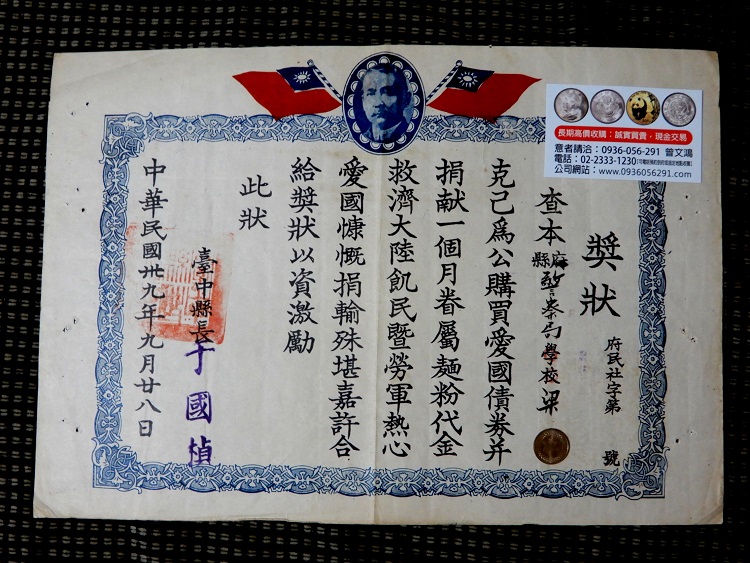 長期高價收購：誠實買賣，現金交易
意者請洽：0936-056-291 曾文鴻
電話：02-2333-1230
公司網站：www.0936056291.com
獎狀
府民社字第 號
查本府縣警察局學校梁
克己為公購買愛國債券并
捐献一個月眷屬麵粉代金
救濟大陸飢民暨勞軍熱心
愛國慷慨捐輸殊堪嘉許合
給獎狀以資激勵
此狀
臺中縣長于國楨
中華民國卅九年九月廿八日